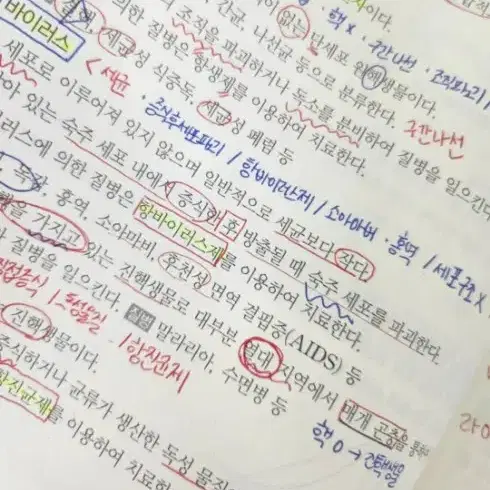 핵 X · 구간나선 · 조직파괴 /
이 없는 단세포 원핵생물이다.
간균, 나선균 등으로 분류한다. 구간나선
조직을 파괴하거나 독소를 분비하여 질병을 일으킨다
의한 질병은 항생제를 이용하여 치료한다.
질병, 세균성 식중독, 세균성 폐렴 등
바이러스 < 세균 · 증식후세포파괴 / 항바이러스제 / 소아마비 · 홍역 / 세포구조 X
세포로 이루어져 있지 않으며 일반적으로 세균보다 작다.
살아 있는 숙주 세포 내에서 증식한 후 방출될 때 숙주 세포를 파괴한다.
바이러스에 의한 질병은 항바이러스제를 이용하여 치료한다.
독감, 홍역, 소아마비, 후천성 면역 결핍증(AIDS) 등
핵을 가지고 있는 진핵생물로 대부분 열대 지역에서 매개 곤충을 통해
질병을 일으킨다. 질병 말라리아, 수면병 등
핵 O → 진핵생물
/ 항진균제
진핵생물이다.
증식하거나 균류가 생산한 독성 물질
항진균제를 이용하여 치료